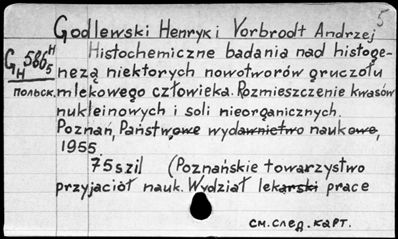 5
Godlewski Henryk i Vorbrodt Andrzej
Histochemiczne badania nad histoge-
G 586 H
H 5
nezą niektorych nowotworów gruczołu
польск.
mlekowego człowieka. Rozmieszczenie kwasów
nukleinowych i soli nieorganicznych.
Poznań, Państwowe wydawnictwo naukowe,
1955.
75szil (Poznańskie towarzystwo
przyjaciół nauk. Wydział lekarski prace
см.след.карт.